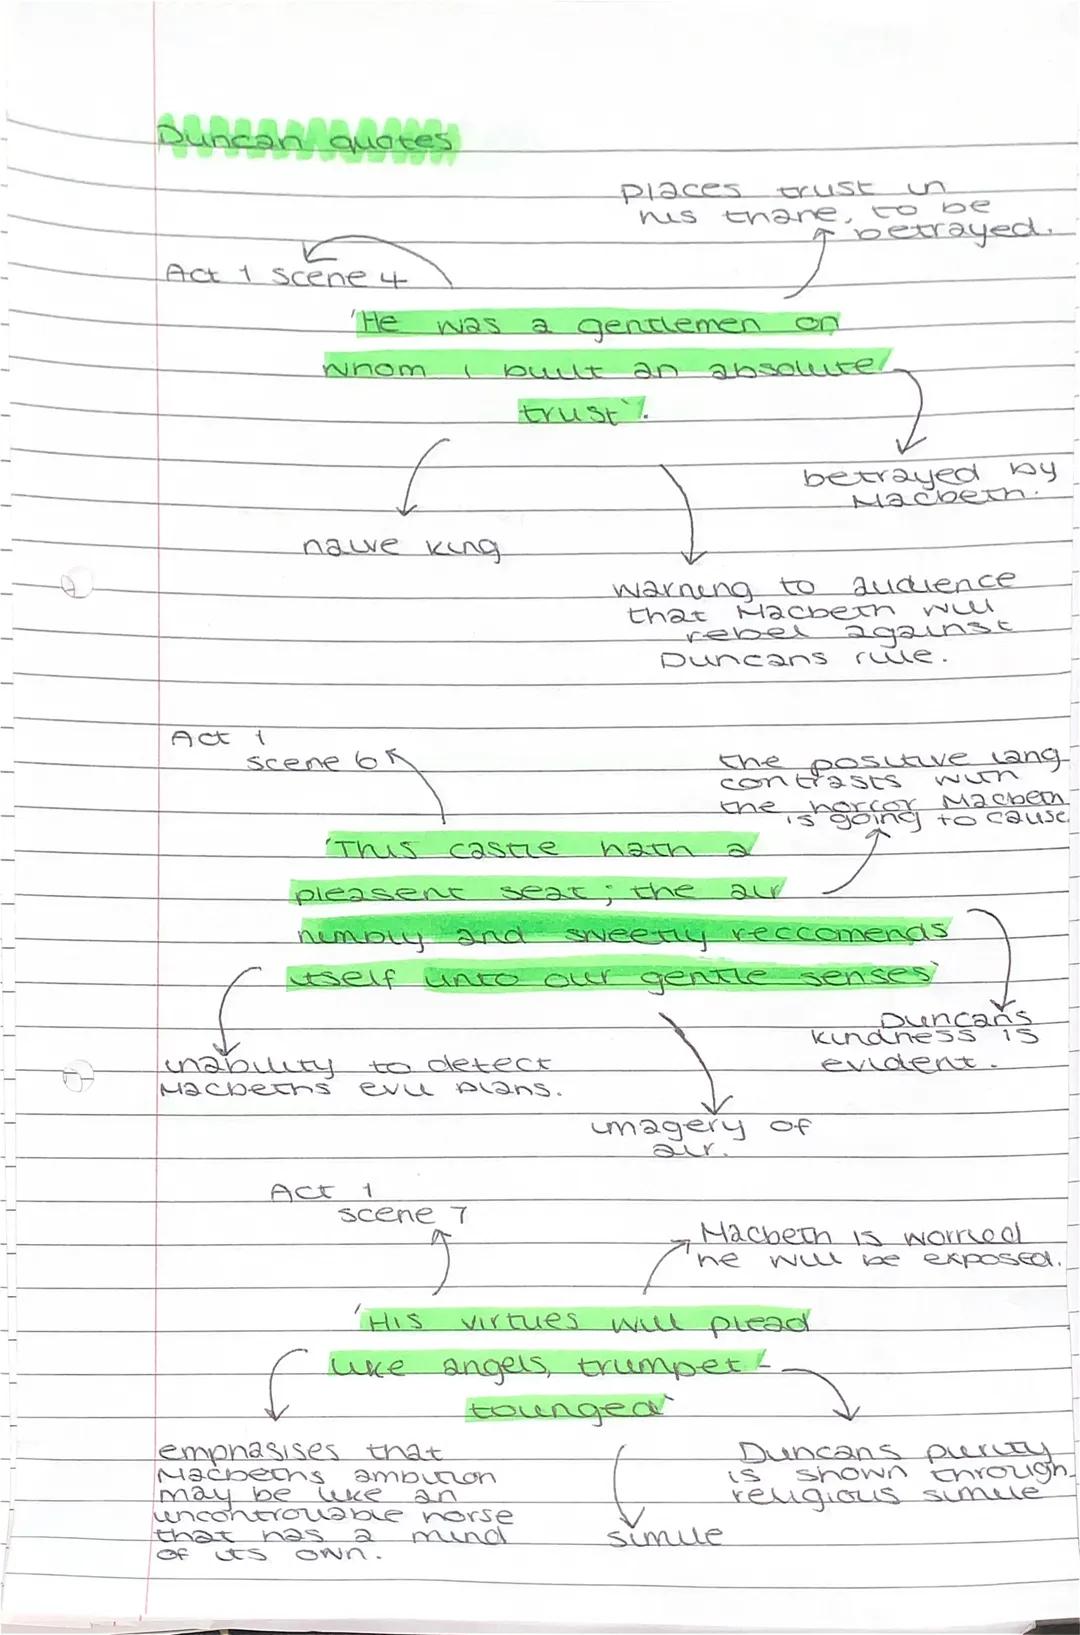 Duncan quotes
places trust in
his thane, to be
betrayed.
Act 1 scene 4
'He was a gentlemen on
whom i built an absolute
trust'.
betrayed by
Macbeth.
naive king
warning to audience
that Macbeth will
rebel against
Duncans rule.
Act 1
scene 6
the positive lang
contrasts with
the horror Macbeth
is going to cause
'This castle hath a
pleasent seat; the air
nimbly and sweetly reccomends
itself unto our gentle senses'
Duncans
kindness is
evident.
inability to detect
Macbeths evil plans.
imagery of
air.
Act 1
scene 7
Macbeth is worried
he will be exposed.
'His virtues will plead
like angels, trumpet-
tounged'
emphasises that
Macbeths ambition
may be like an
uncontrollable horse
that has a mind
of its own.
Duncans purity
is shown through
religious simile
simile